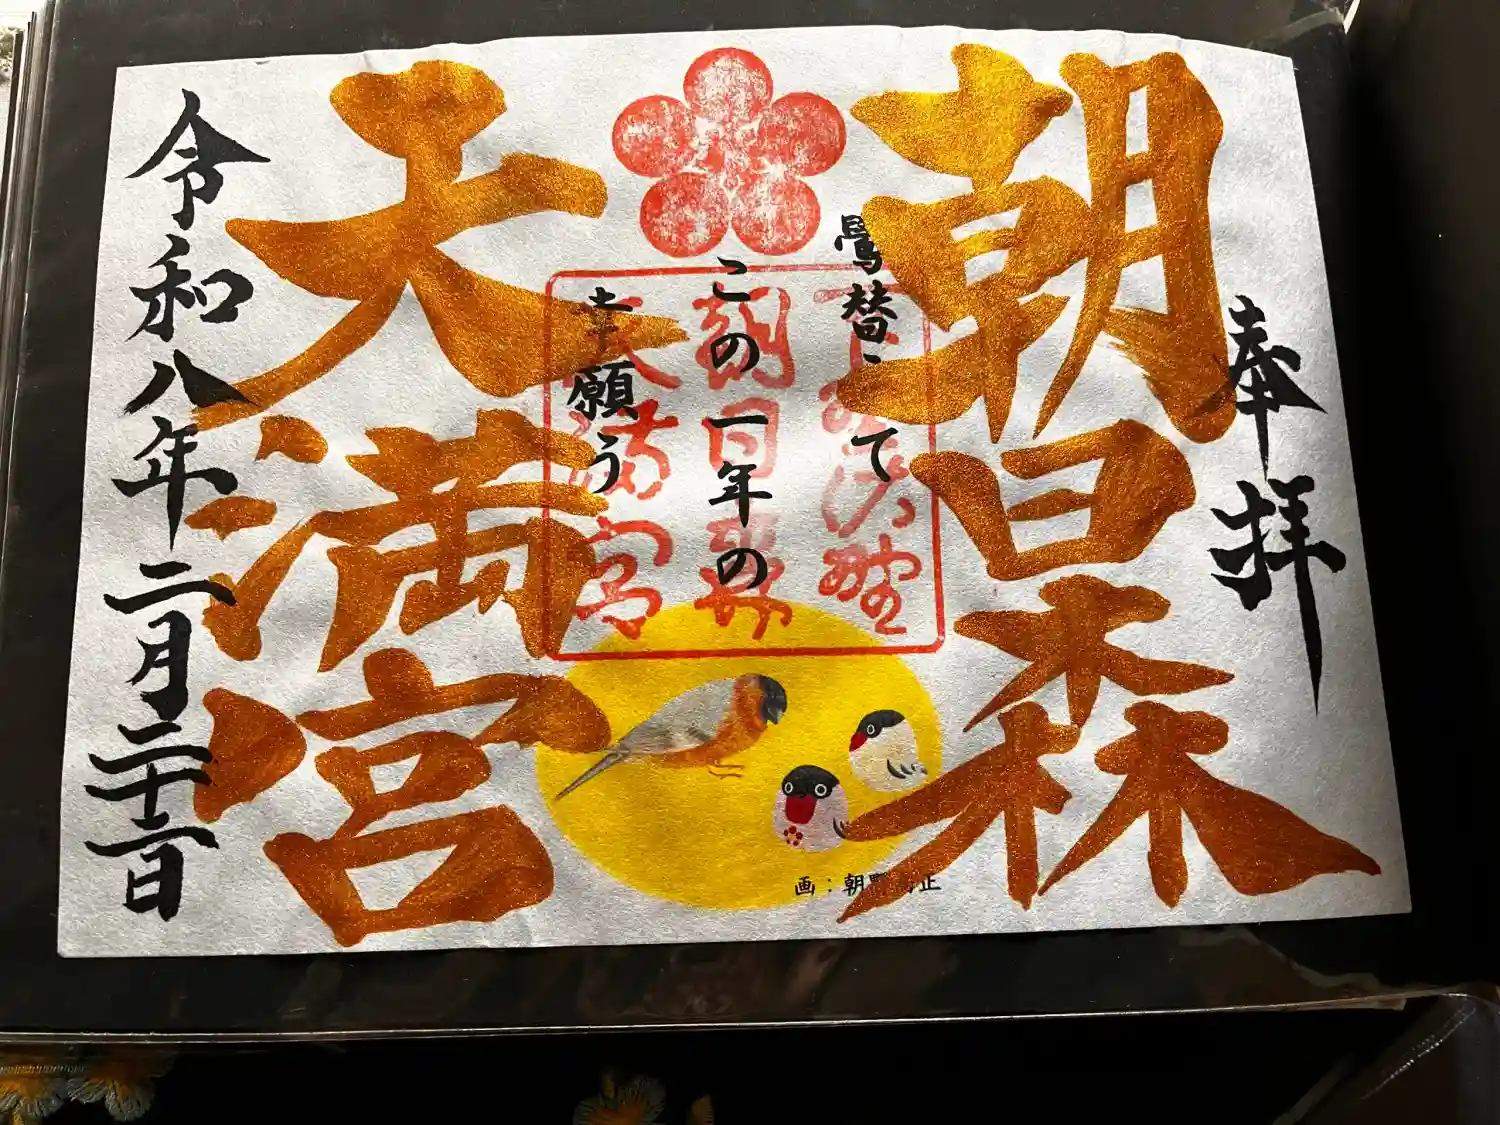 奉拝
朝日森
鷽替えて
この一年の
幸願う
朝日森
天満宮
天満宮
令和八年二月二十二日
画：朝野 正